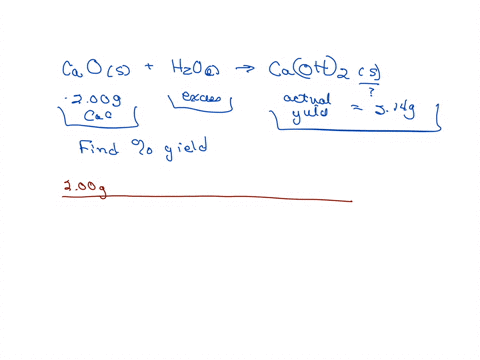 CaO(s) + H2O(l) → Ca(OH)2 (s)
2.00g excess actual ?
CaO yield = 2.14g
Find % yield
2.00g